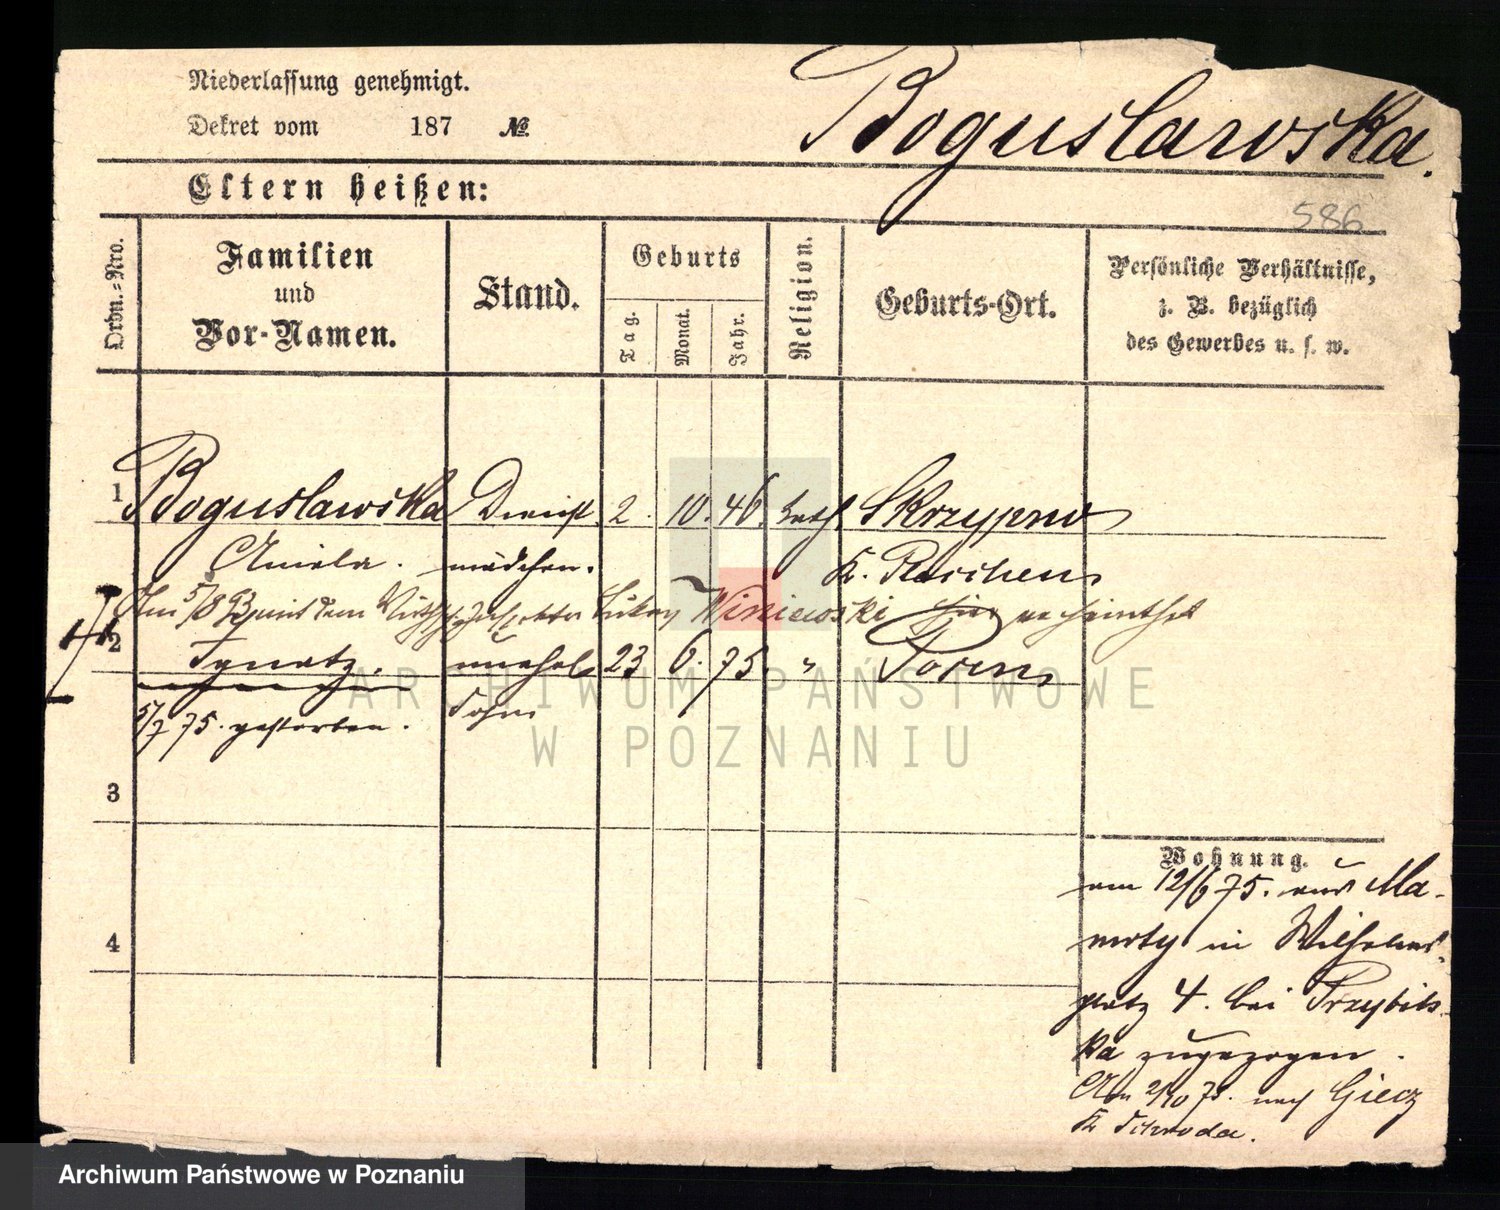 Niederlassung genehmigt.
Dekret vom 187 №
Boguslawska.
Eltern heißen:
586
Ordn.-Nro.
Familien
und
Vor-Namen.
Stand.
Geburts
Tag.
Monat.
Jahr.
Religion.
Geburts-Ort.
Persönliche Verhältnisse,
z. B. bezüglich
des Gewerbes u. s. w.
1 Boguslawska Dienst 2. 10. 46. kath Skrzypno
Aniela. mädchen. K. Pleschen
Am 5/8 93 mit dem Lukas Wisniewski hier verheirathet
2 Ignatz. unehel 23 6. 75. " Posen
5/7 75. gestorben. Sohn
3
4
Wohnung.
am 12/6 75. aus Ma-
in Wilhelms-
platz 4. bei Przybils-
ka zugezogen.
Am 2/10 75. nach Giecz
K Schroda.
ARCHIWUM PAŃSTWOWE
W POZNANIU
Archiwum Państwowe w Poznaniu